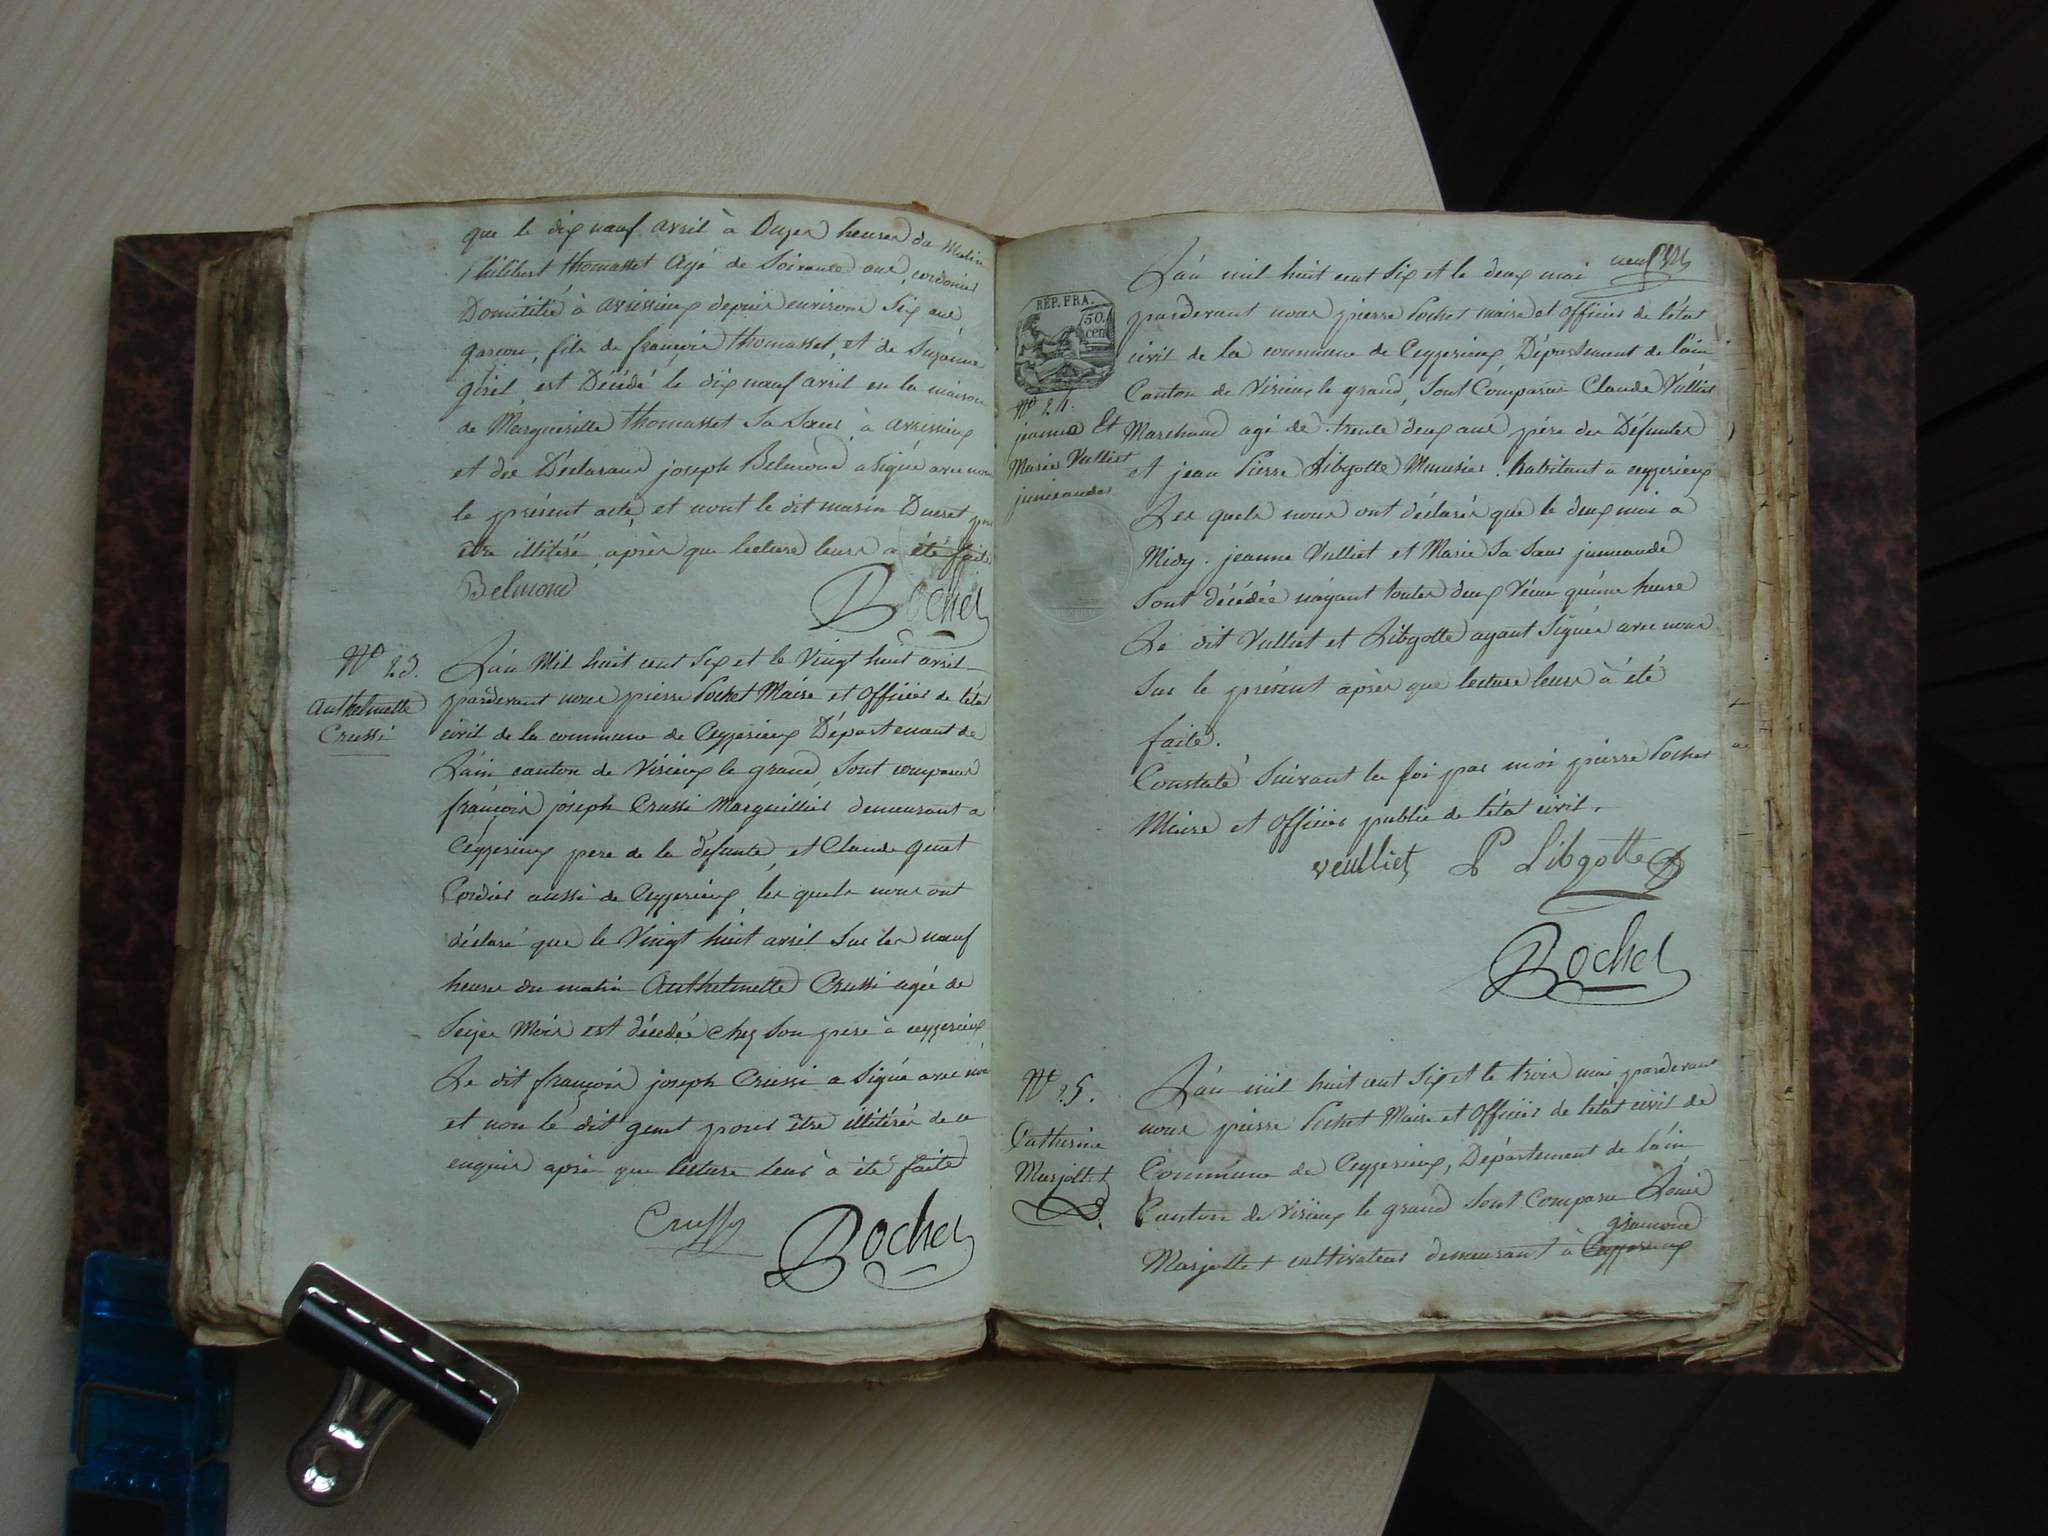 que le dix neuf avril à Onzes heures du Matin
Philibert thomasset Agé de Soixante ans, cordonier
Domicilié à avissieux depuis environs Six ans
garcon, fils de françois thomasset, et de Suzanne
est Décédé le dix neuf avril en la maison
de Margueritte thomasset Sa Sœur à avissieux
et des Déclarans joseph Belmond a Signé avec nous
le présent acte, et nont le dit marin Ducret pour
être illitéré, après que lecture leurs a été faite
Belmond
Pochet
N° 23.
Anthelmette
Crussi
L'an Mil huit cent Six et le Vingt huit avril
pardevant nous pierre Pochet Maire et officier de l'état
civil de la commune de Ceyzerieux Département de
L'ain canton de Virieux le grand Sont comparus
françois joseph Crussi Marguillier demeurant a
Ceyzerieux pere de la défunte, et Claude genet
Cordier aussi de Ceyzerieux, les quels nous ont
déclaré que le Vingt huit avril Sur les neuf
heures du matin Anthelmette Crussi agée de
Seize Mois est décédée chez Son pere à ceyzerieux
Le dit françois joseph Crussi a Signé avec nous
et non le dit genet pour être illitérés de ce
enquis après que lecture leur à été faite
Crussy
Pochet
neuf
RÉP. FRA.
50.
cen
N° 24.
jeanne Et
Marie Vulliet
jumeaudes
L'an mil huit cent Six et le deux mai
pardevant nous pierre Pochet maire et officier de l'état
civil de la commune de Ceyzerieux Département de l'ain
Canton de Virieux le grand, Sont Comparus Claude Vulliet
Marchand agé de trente deux ans pére des Défuntes
et jean Pierre Libgotte Menusier habitant a ceyzerieux
Les quels nous ont déclarés que le deux mai à
Midy jeanne Vulliet et Marie Sa Sœur jumeaude
Sont décédée n'ayant toutes deux Vécue qu'une heure
Le dit Vulliet et Libgotte ayant Signés avec nous
Sur le présent après que lecture leurs à été
faite.
Constaté Suivant la loi par moi pierre Pochet
Maire et officier public de l'état civil.
veulliet P Libgotte
Pochet
N° 25.
Catherine
Marjollet
L'an mil huit cent Six et le trois mai, pardevant
nous pierre Pochet Maire et officier de l'état civil de
Commune de Ceyzerieux, Département de l'ain
Canton de Virieux le grand Sont Comparu Louis
gramond
Marjollet cultivateur demeurant à Ceyzerieux